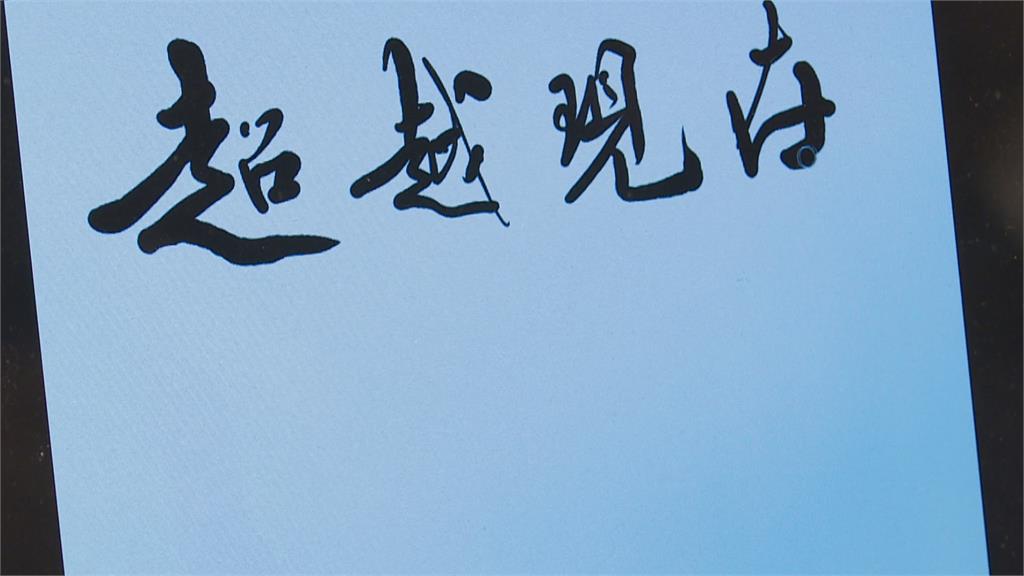 超越現在